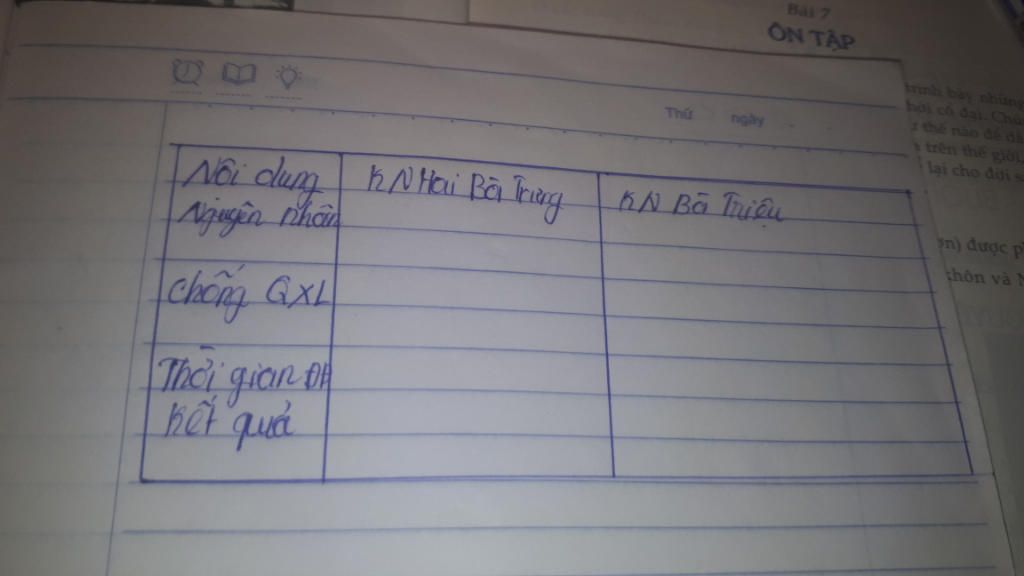 Bài 7
ÔN TẬP
Thứ ngày
Nội dung KN Hai Bà Trưng KN Bà Triệu
Nguyên nhân
chống QXL
Thời gian ĐH
Kết quả
trình bày những
thời cổ đại.
thế nào để
trên thế giới.
lại cho đời
được
khôn và